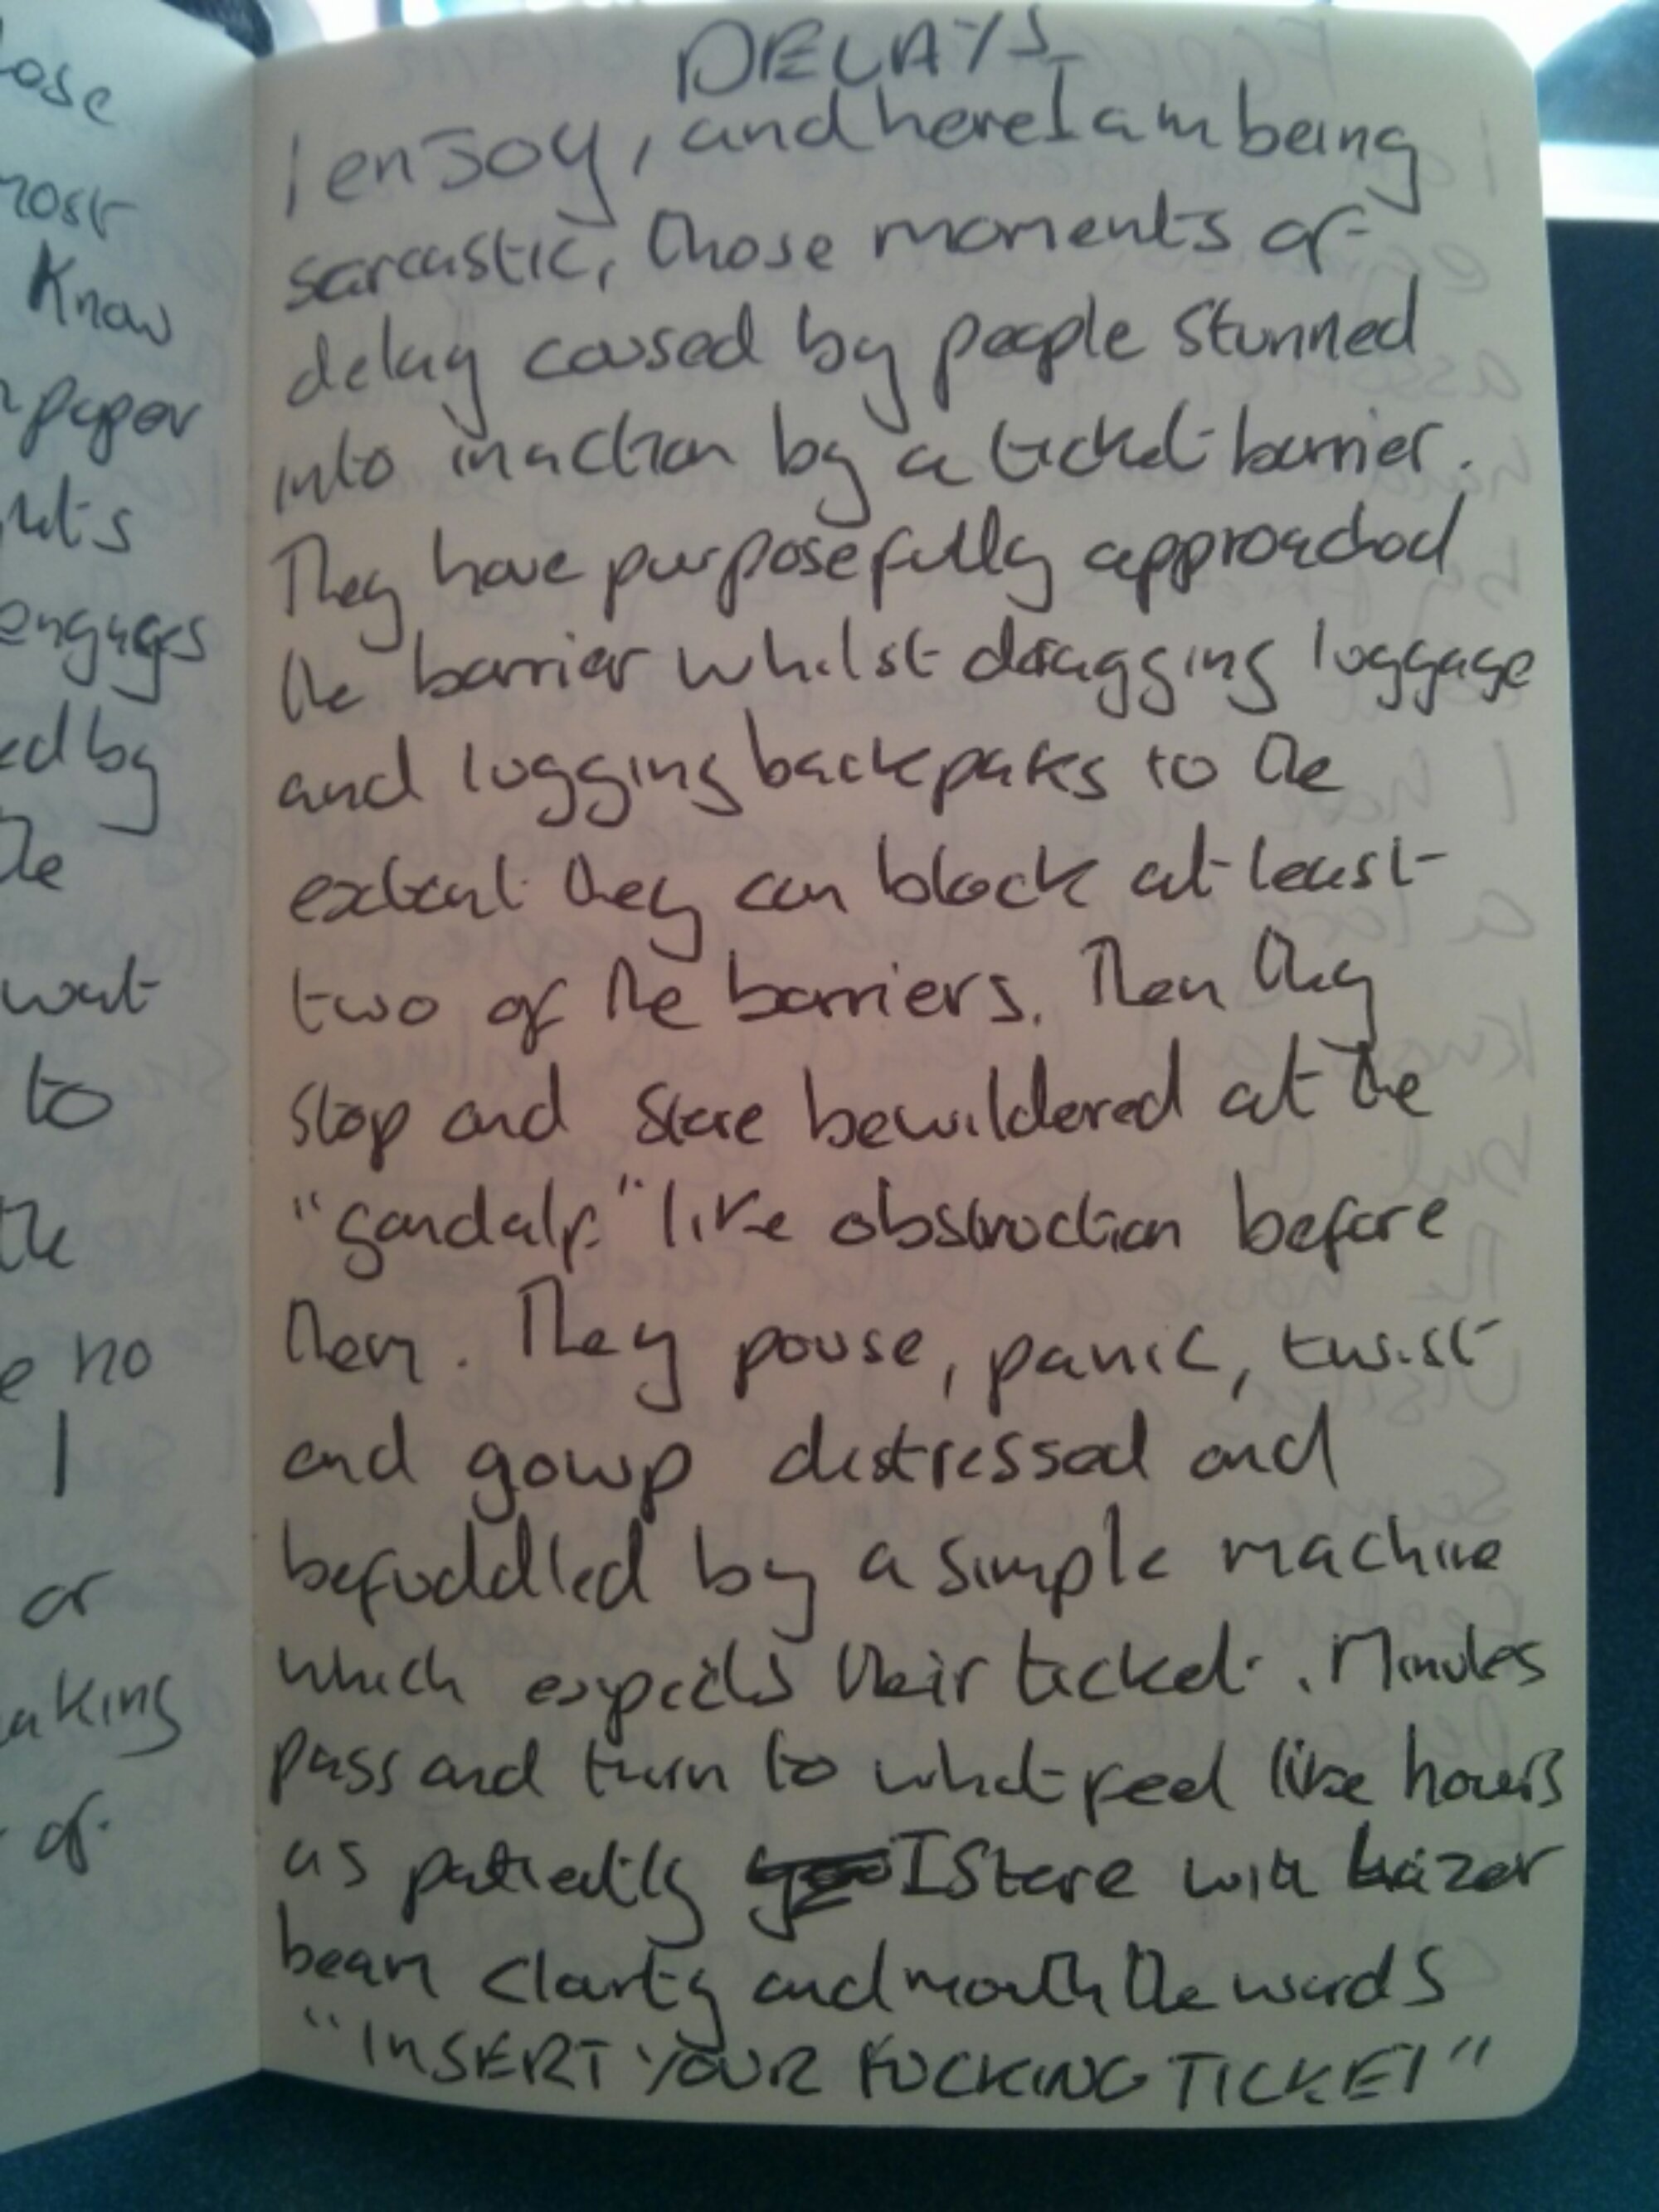 DELAYS
I enjoy, and here I am being
sarcastic, those moments of
delay caused by people stunned
into inaction by a ticket barrier.
They have purposefully approached
the barrier whilst dragging luggage
and lugging backpaks to the
extent they can block at least
two of the barriers. Then they
stop and stare bewildered at the
"gandalf" like obstruction before
them. They pause, panic, twist
and gowp distressed and
befuddled by a simple machine
which expects their ticket. Minutes
pass and turn to what feel like hours
as patiently I stare with lazer
beam clarity and mouth the words
"INSERT YOUR FUCKING TICKET"
ose
most
Know
paper
engages
ed by
the
wait
to
the
e no
I
or
aking
of